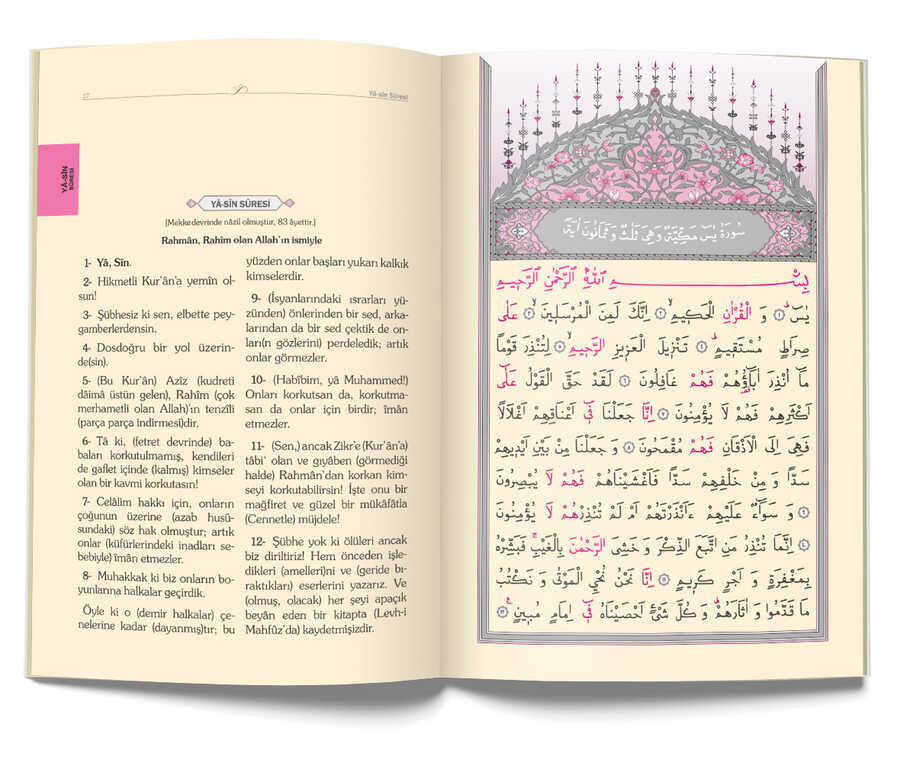 17
Yâ-sîn Sûresi
YÂ-SÎN
SÛRESİ
YÂ-SÎN SÛRESİ
(Mekke devrinde nâzil olmuştur, 83 âyettir.)
Rahmân, Rahîm olan Allah'ın ismiyle
1- Yâ, Sîn.
2- Hikmetli Kur'ân'a yemîn ol-
sun!
3- Şübhesiz ki sen, elbette pey-
gamberlerdensin.
4- Dosdoğru bir yol üzerin-
de(sin).
5- (Bu Kur'ân) Azîz (kudreti
dâimâ üstün gelen), Rahîm (çok
merhametli olan Allah)'ın tenzîli
(parça parça indirmesi)dir.
6- Tâ ki, (fetret devrinde) ba-
baları korkutulmamış, kendileri
de gaflet içinde (kalmış) kimseler
olan bir kavmi korkutasın!
7- Celâlim hakkı için, onların
çoğunun üzerine (azab husû-
sundaki) söz hak olmuştur; artık
onlar (küfürlerindeki inadları se-
bebiyle) îmân etmezler.
8- Muhakkak ki biz onların bo-
yunlarına halkalar geçirdik.
Öyle ki o (demir halkalar) çe-
nelerine kadar (dayanmış)tır; bu
yüzden onlar başları yukarı kalkık
kimselerdir.
9- (İsyanlarındaki ısrarları yü-
zünden) önlerinden bir sed, arka-
larından da bir sed çektik de on-
ları(n gözlerini) perdeledik; artık
onlar görmezler.
10- (Habîbim, yâ Muhammed!)
Onları korkutsan da, korkutma-
san da onlar için birdir; îmân
etmezler.
11- (Sen,) ancak Zikr'e (Kur'ân'a)
tâbi' olan ve gıyâben (görmediği
halde) Rahmân'dan korkan kim-
seyi korkutabilirsin! İşte onu bir
mağfiret ve güzel bir mükâfâtla
(Cennetle) müjdele!
12- Şübhe yok ki ölüleri ancak
biz diriltiriz! Hem önceden işle-
dikleri (amelleri)ni ve (geride bı-
raktıkları) eserlerini yazarız. Ve
(olmuş, olacak) her şeyi apaçık
beyân eden bir kitapta (Levh-i
Mahfûz'da) kaydetmişizdir.
سُورَةُ يٰسٓ مَكِّيَّةٌ وَهِيَ ثَلٰثٌ وَثَمَانُونَ اٰيَةً
بِسْمِ اللّٰهِ الرَّحْمٰنِ الرَّحِيمِ
يٰسٓ ۚ ﴿١﴾ وَ الْقُرْاٰنِ الْحَكِيمِ ۙ ﴿٢﴾ اِنَّكَ لَمِنَ الْمُرْسَلِينَ ۙ ﴿٣﴾ عَلٰى
صِرَاطٍ مُسْتَقِيمٍ ۜ ﴿٤﴾ تَنْزِيلَ الْعَزِيزِ الرَّحِيمِ ۙ ﴿٥﴾ لِتُنْذِرَ قَوْمًا
مَا اُنْذِرَ اٰبَاؤُهُمْ فَهُمْ غَافِلُونَ ﴿٦﴾ لَقَدْ حَقَّ الْقَوْلُ عَلٰٓى
اَكْثَرِهِمْ فَهُمْ لَا يُؤْمِنُونَ ﴿٧﴾ اِنَّا جَعَلْنَا فِٓى اَعْنَاقِهِمْ اَغْلَالًا
فَهِىَ اِلَى الْاَذْقَانِ فَهُمْ مُقْمَحُونَ ﴿٨﴾ وَ جَعَلْنَا مِنْ بَيْنِ اَيْدِيهِمْ
سَدًّا وَ مِنْ خَلْفِهِمْ سَدًّا فَاَغْشَيْنَاهُمْ فَهُمْ لَا يُبْصِرُونَ
﴿٩﴾ وَ سَوَٓاءٌ عَلَيْهِمْ ءَاَنْذَرْتَهُمْ اَمْ لَمْ تُنْذِرْهُمْ لَا يُؤْمِنُونَ
﴿١٠﴾ اِنَّمَا تُنْذِرُ مَنِ اتَّبَعَ الذِّكْرَ وَ خَشِىَ الرَّحْمٰنَ بِالْغَيْبِ ۚ فَبَشِّرْهُ
بِمَغْفِرَةٍ وَ اَجْرٍ كَرِيمٍ ﴿١١﴾ اِنَّا نَحْنُ نُحْىِ الْمَوْتٰى وَ نَكْتُبُ
مَا قَدَّمُوا وَ اٰثَارَهُمْ ۜ وَ كُلَّ شَىْءٍ اَحْصَيْنَاهُ فِٓى اِمَامٍ مُبِينٍ ۟ ﴿١٢﴾